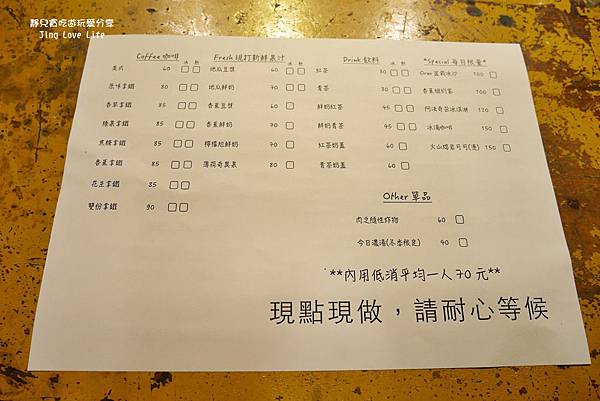 靜兒貪吃遊玩愛分享
Jing Love Life
Coffee 咖啡 冰 熱
美式 60 □□
原味拿鐵 80 □□
香草拿鐵 85 □□
榛果拿鐵 85 □□
焦糖拿鐵 85 □□
香蕉拿鐵 85 □□
花生拿鐵 85 □□
雙份拿鐵 90 □□
Fresh 現打新鮮果汁 冰 熱
地瓜豆漿 60 □□
地瓜鮮奶 70 □□
香蕉豆漿 60 □
香蕉鮮奶 70 □
檸檬旭鮮奶 70 □
薄荷奇異果 80 □
Drink 飲料 冰 熱
紅茶 30 □□
青茶 30 □□
鮮奶紅茶 45 □□
鮮奶青茶 45 □□
紅茶奶蓋 60 □
青茶奶蓋 60 □
*Special 每日限量*
Oreo 冰沙 100 □
香蕉 100 □
阿法奇朵冰淇淋 120 □
冰滴咖啡 150 □
火山熔岩可可(燙) 150 □
Other 單品
肉之隨性炸物 60 □
今日濃湯(冬季限定) 40 □
**內用低消平均一人70元**
現點現做,請耐心等候